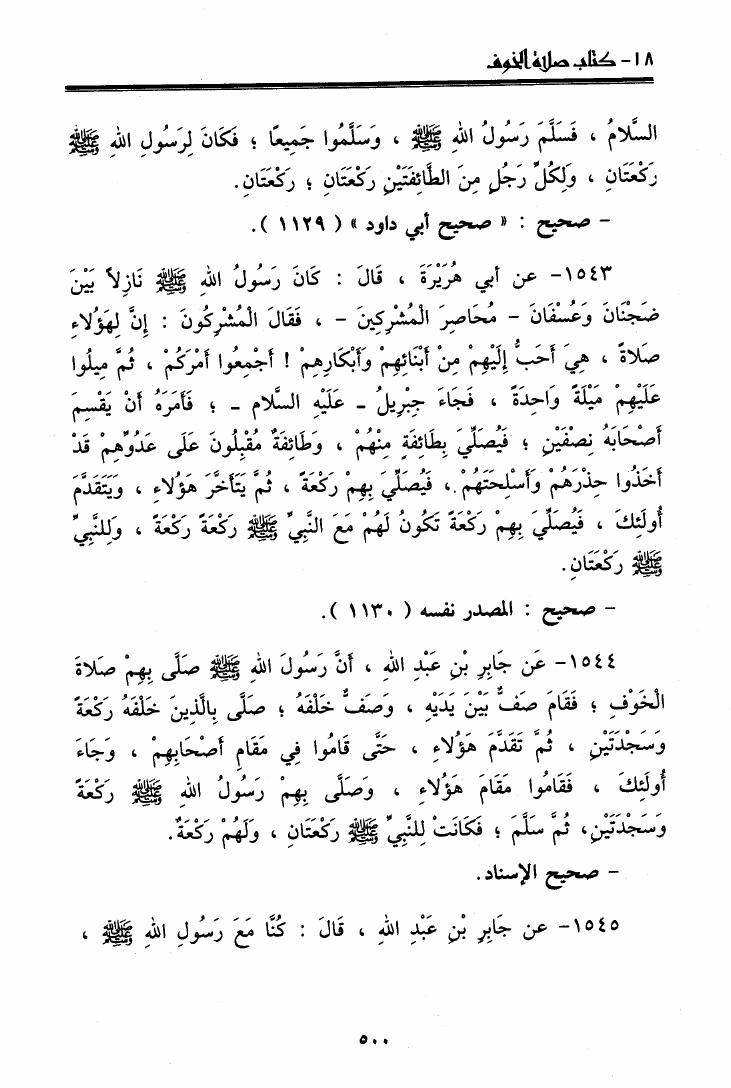 ١٨- كتاب صلاة الخوف
السَّلامُ ، فَسَلَّمَ رَسُولُ اللهِ ﷺ ، وَسَلَّمُوا جَمِيعًا ؛ فَكَانَ لِرَسُولِ اللهِ ﷺ
رَكْعَتَانِ ، وَلِكُلِّ رَجُلٍ مِنَ الطَّائِفَتَيْنِ رَكْعَتَانِ ؛ رَكْعَتَانِ.
- صحيح : « صحيح أبي داود » ( ١١٢٩ ).
١٥٤٣- عن أبي هُرَيْرَةَ ، قَالَ : كَانَ رَسُولُ اللهِ ﷺ نَازِلاً بَيْنَ
ضَجْنَانَ وَعُسْفَانَ - مُحَاصِرَ الْمُشْرِكِينَ - ، فَقَالَ الْمُشْرِكُونَ : إِنَّ لِهَؤُلاءِ
صَلاةً ، هِيَ أَحَبُّ إِلَيْهِمْ مِنْ أَبْنَائِهِمْ وَأَبْكَارِهِمْ ! أَجْمِعُوا أَمْرَكُمْ ، ثُمَّ مِيلُوا
عَلَيْهِمْ مَيْلَةً وَاحِدَةً ، فَجَاءَ جِبْرِيلُ - عَلَيْهِ السَّلام - ؛ فَأَمَرَهُ أَنْ يَقْسِمَ
أَصْحَابَهُ نِصْفَيْنِ ؛ فَيُصَلِّيَ بِطَائِفَةٍ مِنْهُمْ ، وَطَائِفَةٌ مُقْبِلُونَ عَلَى عَدُوِّهِمْ قَدْ
أَخَذُوا حِذْرَهُمْ وَأَسْلِحَتَهُمْ ، فَيُصَلِّيَ بِهِمْ رَكْعَةً ، ثُمَّ يَتَأَخَّرَ هَؤُلاءِ ، وَيَتَقَدَّمَ
أُولَئِكَ ، فَيُصَلِّيَ بِهِمْ رَكْعَةً تَكُونُ لَهُمْ مَعَ النَّبِيِّ ﷺ رَكْعَةً رَكْعَةً ، وَلِلنَّبِيِّ
ﷺ رَكْعَتَانِ.
- صحيح : المصدر نفسه ( ١١٣٠ ).
١٥٤٤- عَن جَابِرِ بْنِ عَبْدِ اللهِ ، أَنَّ رَسُولَ اللهِ ﷺ صَلَّى بِهِمْ صَلاةَ
الْخَوْفِ ؛ فَقَامَ صَفٌّ بَيْنَ يَدَيْهِ ، وَصَفٌّ خَلْفَهُ ؛ صَلَّى بِالَّذِينَ خَلْفَهُ رَكْعَةً
وَسَجْدَتَيْنِ ، ثُمَّ تَقَدَّمَ هَؤُلاءِ ، حَتَّى قَامُوا فِي مَقَامِ أَصْحَابِهِمْ ، وَجَاءَ
أُولَئِكَ ، فَقَامُوا مَقَامَ هَؤُلاءِ ، وَصَلَّى بِهِمْ رَسُولُ اللهِ ﷺ رَكْعَةً
وَسَجْدَتَيْنِ، ثُمَّ سَلَّمَ ؛ فَكَانَتْ لِلنَّبِيِّ ﷺ رَكْعَتَانِ ، وَلَهُمْ رَكْعَةٌ.
- صحيح الإسناد.
١٥٤٥- عن جَابِرِ بْنِ عَبْدِ اللهِ ، قَالَ : كُنَّا مَعَ رَسُولِ اللهِ ﷺ ،
٥٠٠